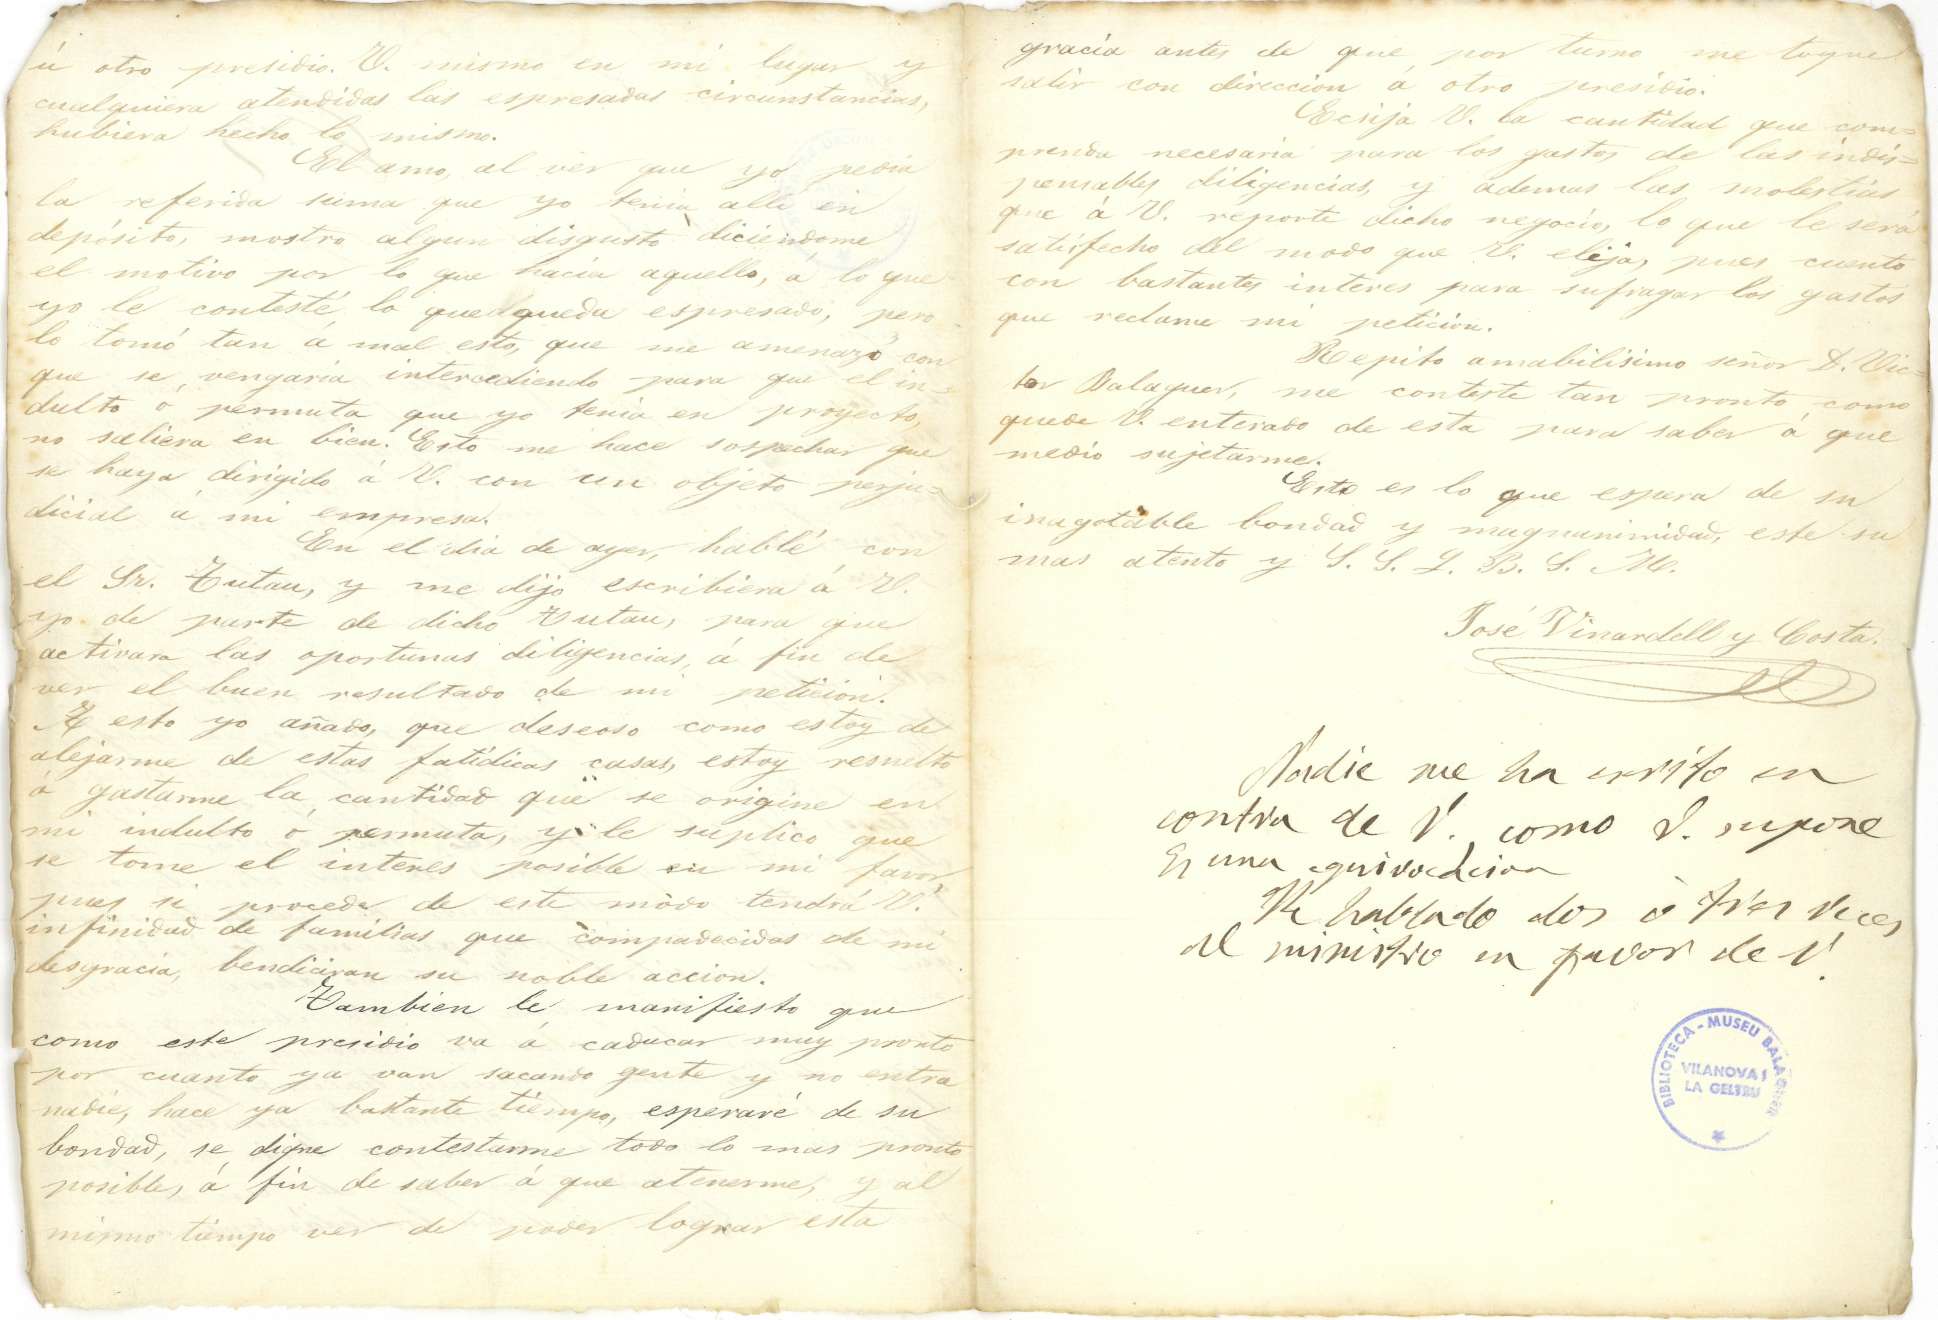 ú otro presidio. V. mismo en mi lugar y
cualquiera atendidas las espresadas circunstancias,
hubiera hecho lo mismo.
El amo, al ver que yo pedia
la referida suma que yo tenia alli en
depósito, mostro algun disgusto diciendome
el motivo por lo que hacia aquello, á lo que
yo le contesté lo que queda espresado, pero
lo tomó tan á mal esto, que me amenazó con
que se vengaria intercediendo para que el in=
dulto ó permuta que yo tenia en proyecto,
no saliera en bien. Esto me hace sospechar que
se haya dirigido á V. con un objeto perju=
dicial á mi empresa.
En el dia de ayer, hablé con
el Sr. Tutau, y me dijo escribiera á V.
yo de parte de dicho Tutau, para que
activara las oportunas diligencias, á fin de
ver el buen resultado de mi peticion.
A esto yo añado, que deseoso como estoy de
alejarme de estas fatídicas casas, estoy resuelto
á gastarme la cantidad que se origine en
mi indulto ó permuta, y le suplico que
se tome el interes posible en mi favor
pues si procede de este modo tendrá V.
infinidad de familias que compadecidas de mi
desgracia, bendiciran su noble accion.
Tambien le manifiesto que
como este presidio va á caducar muy pronto
por cuanto ya van sacando gente y no entra
nadie, hace ya bastante tiempo, esperaré de su
bondad, se digne contestarme todo lo mas pronto
posible, á fin de saber á que atenerme, y al
mismo tiempo ver de poder lograr esta
gracia antes de que por turno me toque
salir con direccion a otro presidio.
Ecsija V. la cantidad que com=
prenda necesaria para los gastos de las indis=
pensables diligencias, y ademas las molestias
que á V. reporte dicho negocio, lo que le será
satisfecho del modo que V. elija, pues cuento
con bastantes interes para sufragar los gastos
que reclame mi peticion.
Repito amabilisimo señor D. Vic=
tor Balaguer, me conteste tan pronto como
quede V. enterado de esta para saber á que
medio sujetarme.
Esto es lo que espera de su
inagotable bondad y magnanimidad, este su
mas atento y S. S. Q. B. S. M.
José Vinardell y Costa.
Nadie me ha escrito en
contra de V. como V. supone
Es una equivocacion
He hablado dos ó tres veces
al ministro en favor de V.
BIBLIOTECA - MUSEU BALAGUER
VILANOVA I
LA GELTRU